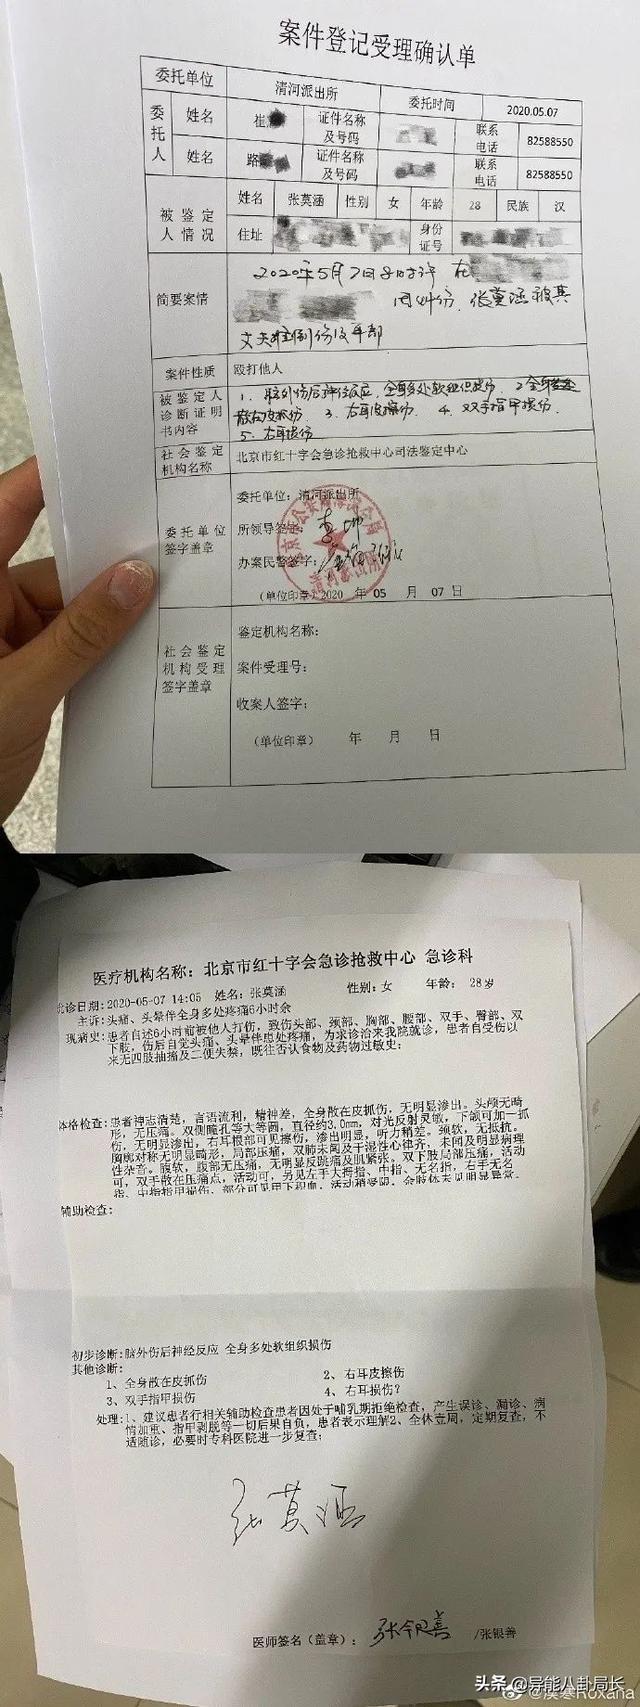 案件登记受理确认单
委托单位 清河派出所 委托时间 2020.05.07
委托人 姓名 崔 证件名称及号码 联系电话 82588550
姓名 路 证件名称及号码 联系电话 82588550
被鉴定人情况 姓名 张莫涵 性别 女 年龄 28 民族 汉
住址 身份证号
简要案情 2020年5月7日8时许 在
张莫涵被其
丈夫
案件性质 殴打他人
被鉴定人诊断证明书内容 1、脑外伤后神经反应,全身多处软组织损伤 2全身
散在皮抓伤 3、右耳皮擦伤、 4、双手指甲损伤、
5、右耳损伤
社会鉴定机构名称 北京市红十字会急诊抢救中心司法鉴定中心
委托单位签字盖章 委托单位:清河派出所
所领导签字:
办案民警签字:
(单位印章) 2020 年 05 月 07 日
社会鉴定机构受理签字盖章 鉴定机构名称:
案件受理号:
收案人签字:
(单位印章) 年 月 日
医疗机构名称: 北京市红十字会急诊抢救中心 急诊科
诊日期:2020-05-07 14:05 姓名:张莫涵 性别:女 年龄: 28岁
主诉:头痛、头晕伴全身多处疼痛6小时余
现病史:患者自述6小时前被他人打伤,致伤头部、颈部、胸部、腰部、双手、臀部、双
下肢,伤后自觉头痛、头晕伴患处疼痛,为求诊治来我院就诊,患者自受伤以
来无四肢抽搐及二便失禁,既往否认食物及药物过敏史;
体格检查:患者神志清楚,言语流利,精神差,全身散在皮抓伤,无明显渗出。头颅无畸
形,无压痛。双侧瞳孔等大等圆,直径约3.0mm,对光反射灵敏,下颌可加一抓
伤,无明显渗出,右耳根部可见擦伤,渗出明显,听力稍差。颈软,无抵抗。
胸廓对称无明显畸形,局部压痛,双肺未闻及干湿性心律齐,未闻及明显病理
性杂音。腹软,腹部无压痛,无明显反跳痛及肌紧张。双下肢局部压痛,活动
可,双手散在压痛点,活动可,另见左手大拇指、中指、无名指,右手无名
指、中指指甲损伤,部分可见甲下积血,活动稍受限,余肢体未见明显异常。
辅助检查:
初步诊断:脑外伤后神经反应 全身多处软组织损伤
其他诊断:
1、全身散在皮抓伤 2、右耳皮擦伤
3、双手指甲损伤 4、右耳损伤?
处理:1、建议患者行相关辅助检查患者因处于哺乳期拒绝检查,产生误诊、漏诊、病
情加重、指甲剥脱等一切后果自负,患者表示理解2、全休壹周,定期复查,不
适随诊,必要时专科医院进一步复查;
张莫涵
医师签名(盖章): 张银善 /张银善
头条 @异能八卦局长
Roxana